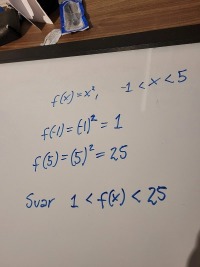 f(x) = x², -1 < x < 5
f(-1) = (-1)² = 1
f(5) = (5)² = 25
Svar 1 < f(x) < 25